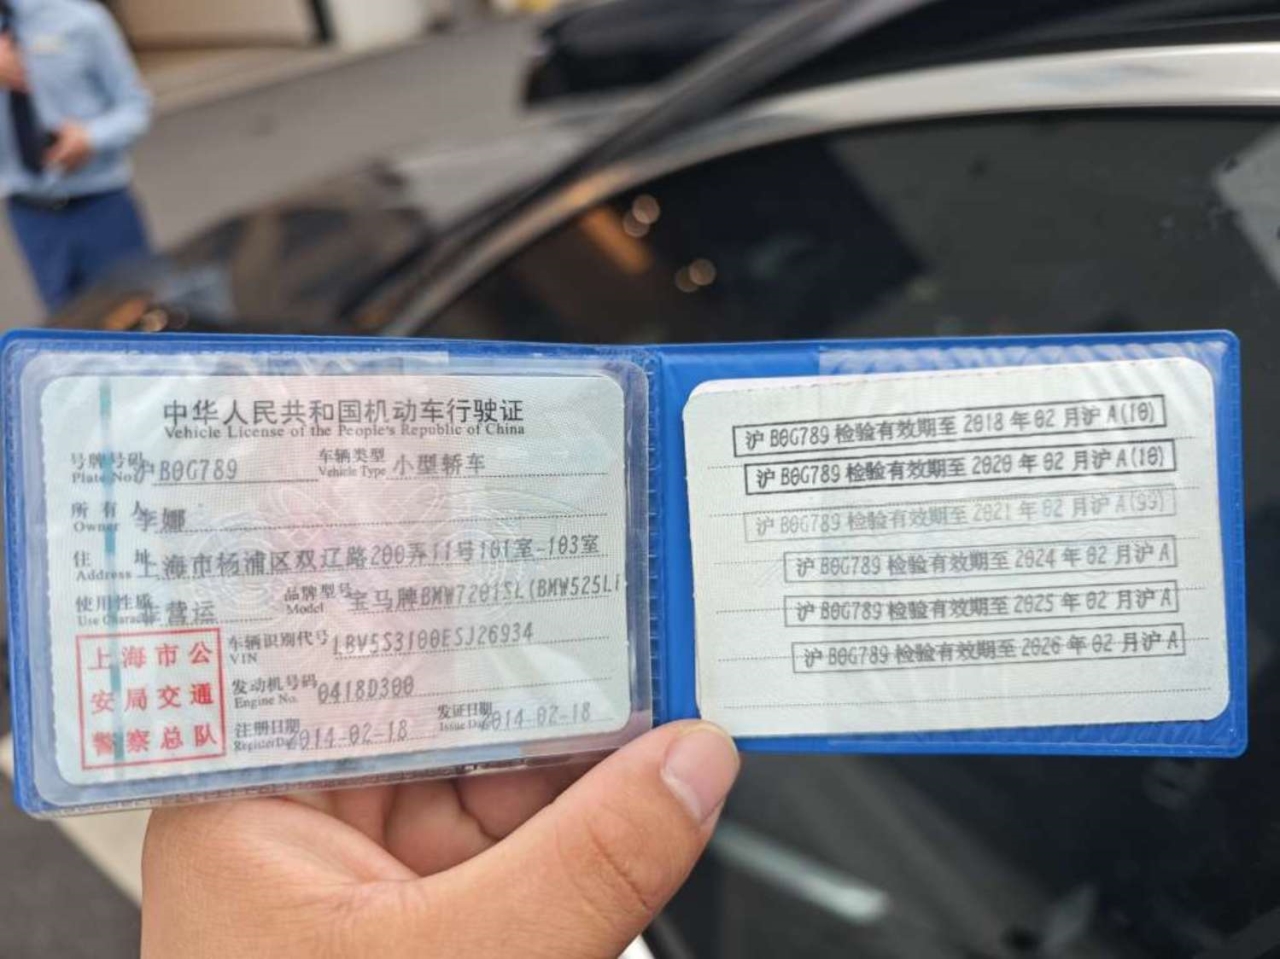 中华人民共和国机动车行驶证
Vehicle License of the People's Republic of China
号牌号码 沪B0G789 车辆类型 小型轿车
Plate No. Vehicle Type
所有人 李娜
Owner
住址 上海市杨浦区双辽路200弄11号101室-103室
Address
使用性质 非营运 品牌型号 宝马牌BMW7201SL(BMW525Li
Use Character Model
上海市公
安局交通
警察总队
车辆识别代号 LBV5S3100ESJ26934
VIN
发动机号码 0418D300
Engine No.
注册日期 2014-02-18 发证日期 2014-02-18
Register Date Issue Date
沪B0G789 检验有效期至 2018 年 02 月沪 A(10)
沪B0G789 检验有效期至 2020 年 02 月沪 A(10)
沪B0G789 检验有效期至 2021 年 02 月沪 A(99)
沪B0G789 检验有效期至 2024 年 02 月沪 A
沪B0G789 检验有效期至 2025 年 02 月沪 A
沪B0G789 检验有效期至 2026 年 02 月沪 A